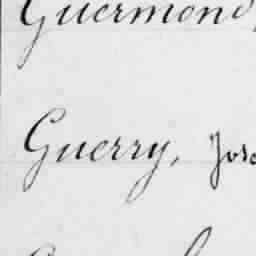 Guermond,
Guerry, Jos